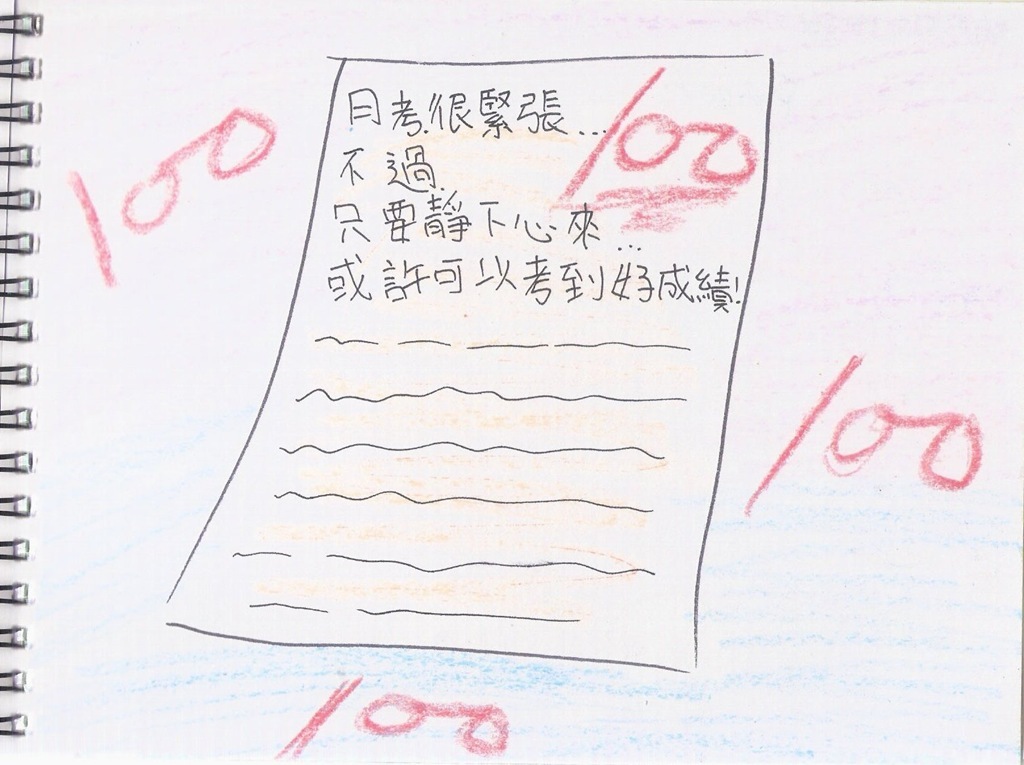 月考很緊張...
不過
只要靜下心來...
或許可以考到好成績!
100
100
100
100